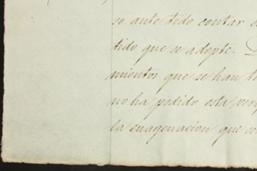 so ante todo contar
tido que se adopte.
mientos que se han
no ha podido esta
la enagenacion que